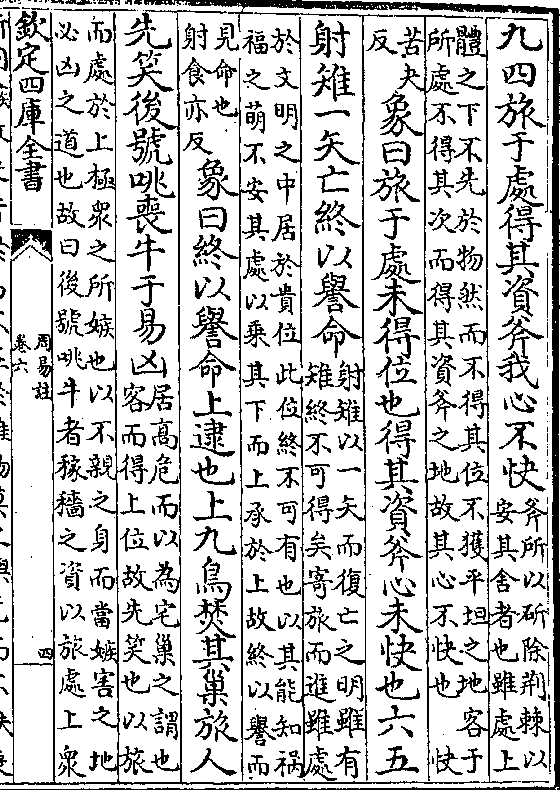 九四旅于處得其資斧我心不快斧所以斫除荆棘以安其舍者也雖處上
體之下不先於物然而不得其位不獲平坦之地客于所處不得其次而得其資斧之地故其心不快也快
苦夬反象曰旅于處未得位也得其資斧心未快也六五
射雉一矢亡終以譽命射雉以一矢而復亡之明雖有雉終不可得矣寄旅而進雖處
於文明之中居於貴位此位終不可有也以其能知禍福之萌不安其處以乘其下而上承於上故終以譽而
見命也射食亦反象曰終以譽命上逮也上九鳥焚其巢旅人
先笑後號咷喪牛于易凶居高危而以為宅巢之謂也客而得上位故先笑也以旅
而處於上極衆之所嫉也以不親之身而當嫉害之地必凶之道也故曰後號咷牛者稼穡之資以旅處上衆
欽定四庫全書
周易註
卷六
四